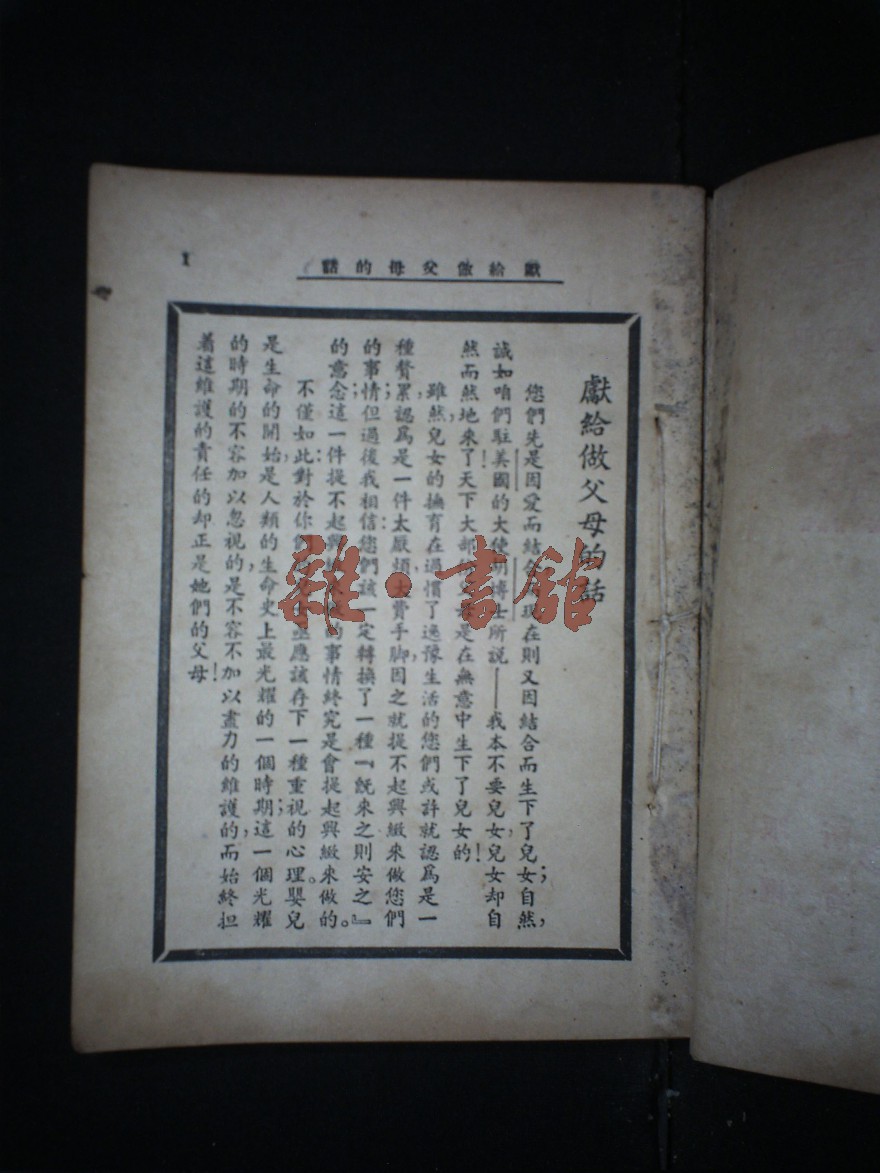 1
獻給做父母的話
獻給做父母的話
您們先是因爱而結合,現在則又因結合而生下了兒女;自然,
誠如咱們駐美國的大使胡博士所說——我本不要兒女,兒女却自
然而然地來了!天下大部是在無意中生下了兒女的!
雖然,兒女的撫育,在過慣了逸豫生活的您們,或許就認爲是一
種贅累;認爲是一件太厭煩太費手脚,因之就提不起興緻來做您們
的事情;但過後,我相信您們該一定轉換了一種『旣來之則安之』
的意念:這一件提不起興緻的事情,終究是會提起興緻來做的。
不僅如此,對於你們應該存下一種重視的心理。嬰兒
是生命的開始,是人類的生命史上最光耀的一個時期;這一個光耀
的時期的不容加以忽視的,是不容不加以盡力的維護的,而始終担
着這維護的責任的,却正是她們的父母!
雜·書館